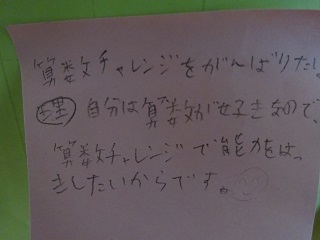 算数チャレンジをがんばりたい。
理 自分は算数が好きなので、
算数チャレンジで能力をはっ
きしたいからです。